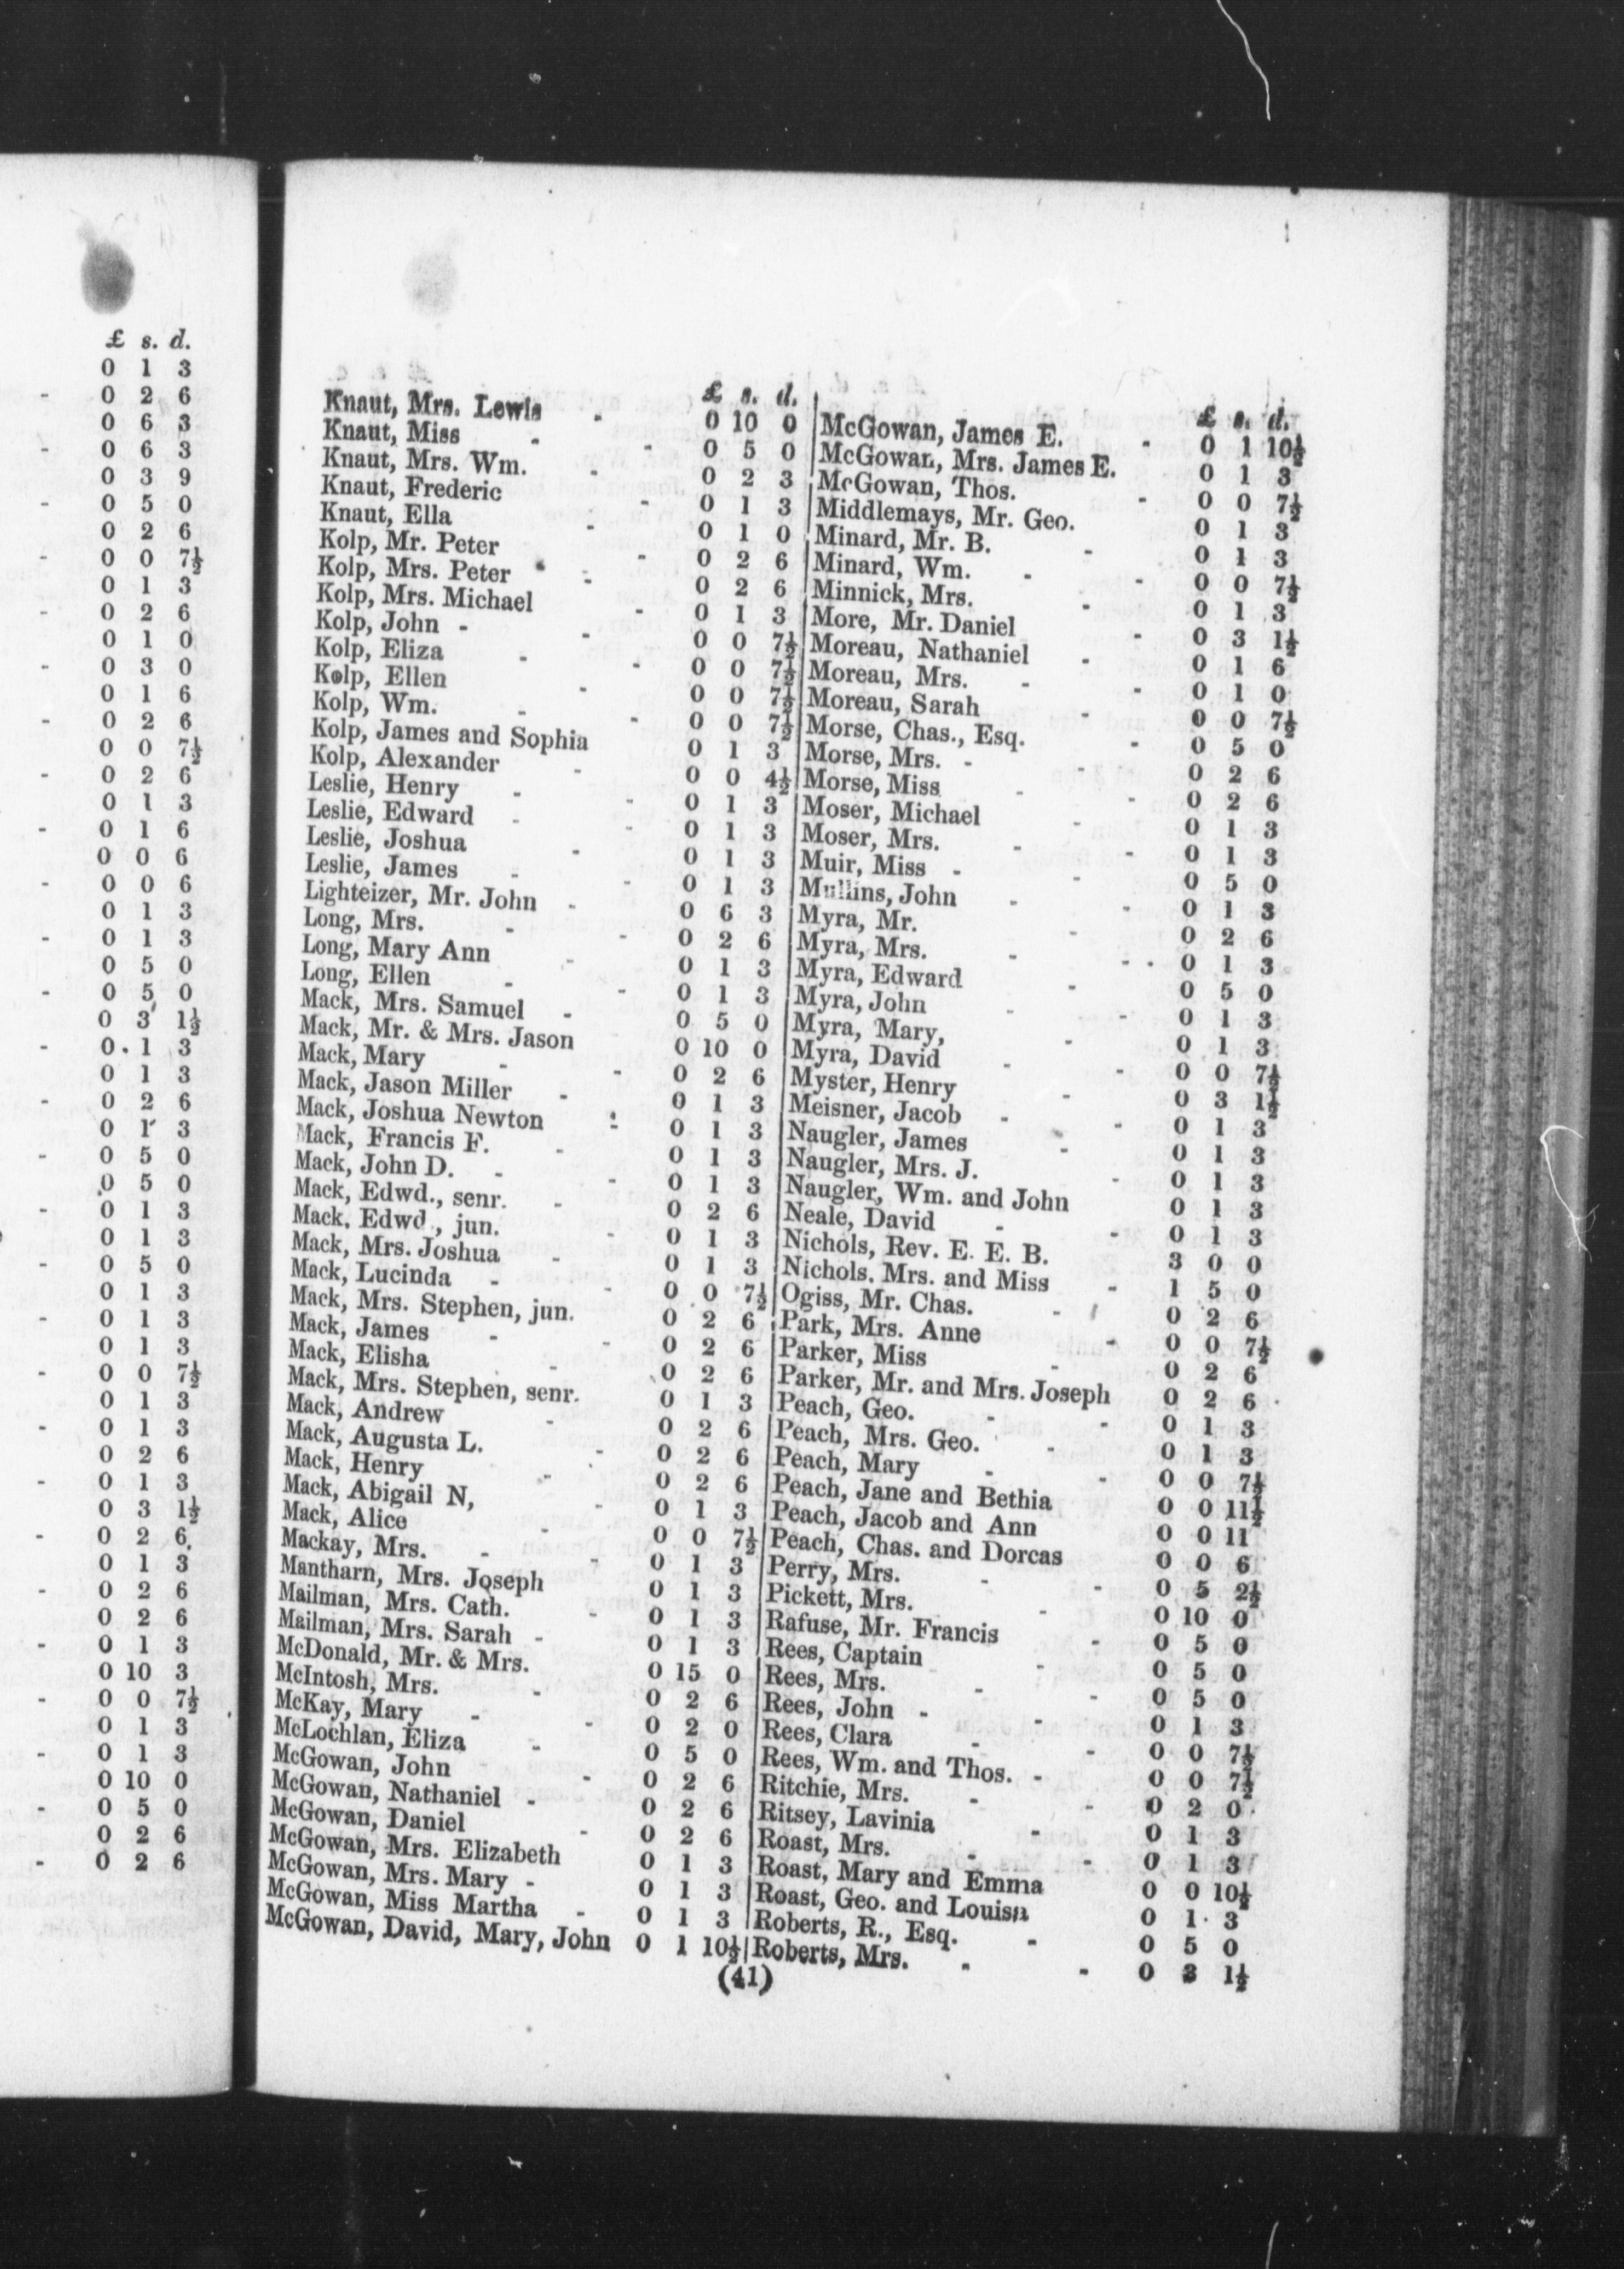 £ s. d.
0 1 3
- 0 2 6
0 6 3
- 0 6 3
0 3 9
- 0 5 0
0 2 6
- 0 0 7½
0 1 3
- 0 2 6
0 1 0
- 0 3 0
0 1 6
- 0 2 6
0 0 7½
- 0 2 6
0 1 3
- 0 1 6
0 0 6
- 0 0 6
0 1 3
- 0 1 3
0 5 0
- 0 5 0
0 3 1½
- 0 1 3
0 1 3
- 0 2 6
0 1 3
- 0 5 0
0 5 0
- 0 1 3
0 1 3
- 0 5 0
0 1 3
- 0 1 3
0 1 3
- 0 0 7½
0 1 3
- 0 1 3
0 2 6
- 0 1 3
0 3 1½
- 0 2 6
0 1 3
- 0 2 6
0 2 6
- 0 1 3
0 10 3
- 0 0 7½
0 1 3
- 0 1 3
0 10 0
- 0 5 0
0 2 6
- 0 2 6
£ s. d.
Knaut, Mrs. Lewis - 0 10 0
Knaut, Miss - - 0 5 0
Knaut, Mrs. Wm. - 0 2 3
Knaut, Frederic - 0 1 3
Knaut, Ella - 0 1 0
Kolp, Mr. Peter - 0 2 6
Kolp, Mrs. Peter - 0 2 6
Kolp, Mrs. Michael - 0 1 3
Kolp, John - - 0 0 7½
Kolp, Eliza - - 0 0 7½
Kolp, Ellen - 0 0 7½
Kolp, Wm. - - 0 0 7½
Kolp, James and Sophia 0 1 3
Kolp, Alexander - 0 0 4½
Leslie, Henry - - 0 1 3
Leslie, Edward - - 0 1 3
Leslie, Joshua - 0 1 3
Leslie, James - - 0 1 3
Lighteizer, Mr. John - 0 6 3
Long, Mrs. - - 0 2 6
Long, Mary Ann - 0 1 3
Long, Ellen - - 0 1 3
Mack, Mrs. Samuel - 0 5 0
Mack, Mr. & Mrs. Jason 0 10 0
Mack, Mary - - 0 2 6
Mack, Jason Miller - 0 1 3
Mack, Joshua Newton - 0 1 3
Mack, Francis F. - 0 1 3
Mack, John D. - - 0 1 3
Mack, Edwd., senr. - 0 2 6
Mack, Edwd., jun. - 0 1 3
Mack, Mrs. Joshua - 0 1 3
Mack, Lucinda - - 0 0 7½
Mack, Mrs. Stephen, jun. 0 2 6
Mack, James - - 0 2 6
Mack, Elisha - 0 2 6
Mack, Mrs. Stephen, senr. 0 1 3
Mack, Andrew - 0 2 6
Mack, Augusta L. - 0 2 6
Mack, Henry - 0 2 6
Mack, Abigail N, - 0 1 3
Mack, Alice - 0 0 7½
Mackay, Mrs. - - 0 1 3
Mantharn, Mrs. Joseph 0 1 3
Mailman, Mrs. Cath. - 0 1 3
Mailman, Mrs. Sarah - 0 1 3
McDonald, Mr. & Mrs. 0 15 0
McIntosh, Mrs. - 0 2 6
McKay, Mary - - 0 2 0
McLochlan, Eliza - 0 5 0
McGowan, John - 0 2 6
McGowan, Nathaniel - 0 2 6
McGowan, Daniel - 0 2 6
McGowan, Mrs. Elizabeth 0 1 3
McGowan, Mrs. Mary - 0 1 3
McGowan, Miss Martha - 0 1 3
McGowan, David, Mary, John 0 1 10½
£ s. d.
McGowan, James E. - 0 1 10½
McGowan, Mrs. James E. 0 1 3
McGowan, Thos. - 0 0 7½
Middlemays, Mr. Geo. 0 1 3
Minard, Mr. B. - 0 1 3
Minard, Wm. - - 0 0 7½
Minnick, Mrs. - 0 1 3
More, Mr. Daniel - 0 3 1½
Moreau, Nathaniel - 0 1 6
Moreau, Mrs. - - 0 1 0
Moreau, Sarah - 0 0 7½
Morse, Chas., Esq. - 0 5 0
Morse, Mrs. - - 0 2 6
Morse, Miss - - 0 2 6
Moser, Michael - 0 1 3
Moser, Mrs. - - 0 1 3
Muir, Miss - - 0 5 0
Mullins, John - - 0 1 3
Myra, Mr. - 0 2 6
Myra, Mrs. - - 0 1 3
Myra, Edward - 0 5 0
Myra, John - - 0 1 3
Myra, Mary, - 0 1 3
Myra, David - - 0 0 7½
Myster, Henry - 0 3 1½
Meisner, Jacob - - 0 1 3
Naugler, James - 0 1 3
Naugler, Mrs. J. - 0 1 3
Naugler, Wm. and John 0 1 3
Neale, David - - 0 1 3
Nichols, Rev. E. E. B. 3 0 0
Nichols. Mrs. and Miss - 1 5 0
Ogiss, Mr. Chas. - 0 2 6
Park, Mrs. Anne - 0 0 7½
Parker, Miss - 0 2 6
Parker, Mr. and Mrs. Joseph 0 2 6
Peach, Geo. - - 0 1 3
Peach, Mrs. Geo. - 0 1 3
Peach, Mary - - 0 0 7½
Peach, Jane and Bethia 0 0 11½
Peach, Jacob and Ann 0 0 11
Peach, Chas. and Dorcas 0 0 6
Perry, Mrs. - - 0 5 2½
Pickett, Mrs. - 0 10 0
Rafuse, Mr. Francis - 0 5 0
Rees, Captain - 0 5 0
Rees, Mrs. - - 0 5 0
Rees, John - - 0 1 3
Rees, Clara - - 0 0 7½
Rees, Wm. and Thos. - 0 0 7½
Ritchie, Mrs. - - 0 2 0
Ritsey, Lavinia - 0 1 3
Roast, Mrs. - - 0 1 3
Roast, Mary and Emma 0 0 10½
Roast, Geo. and Louisa 0 1 3
Roberts, R., Esq. - 0 5 0
Roberts, Mrs. - - 0 3 1½
(41)